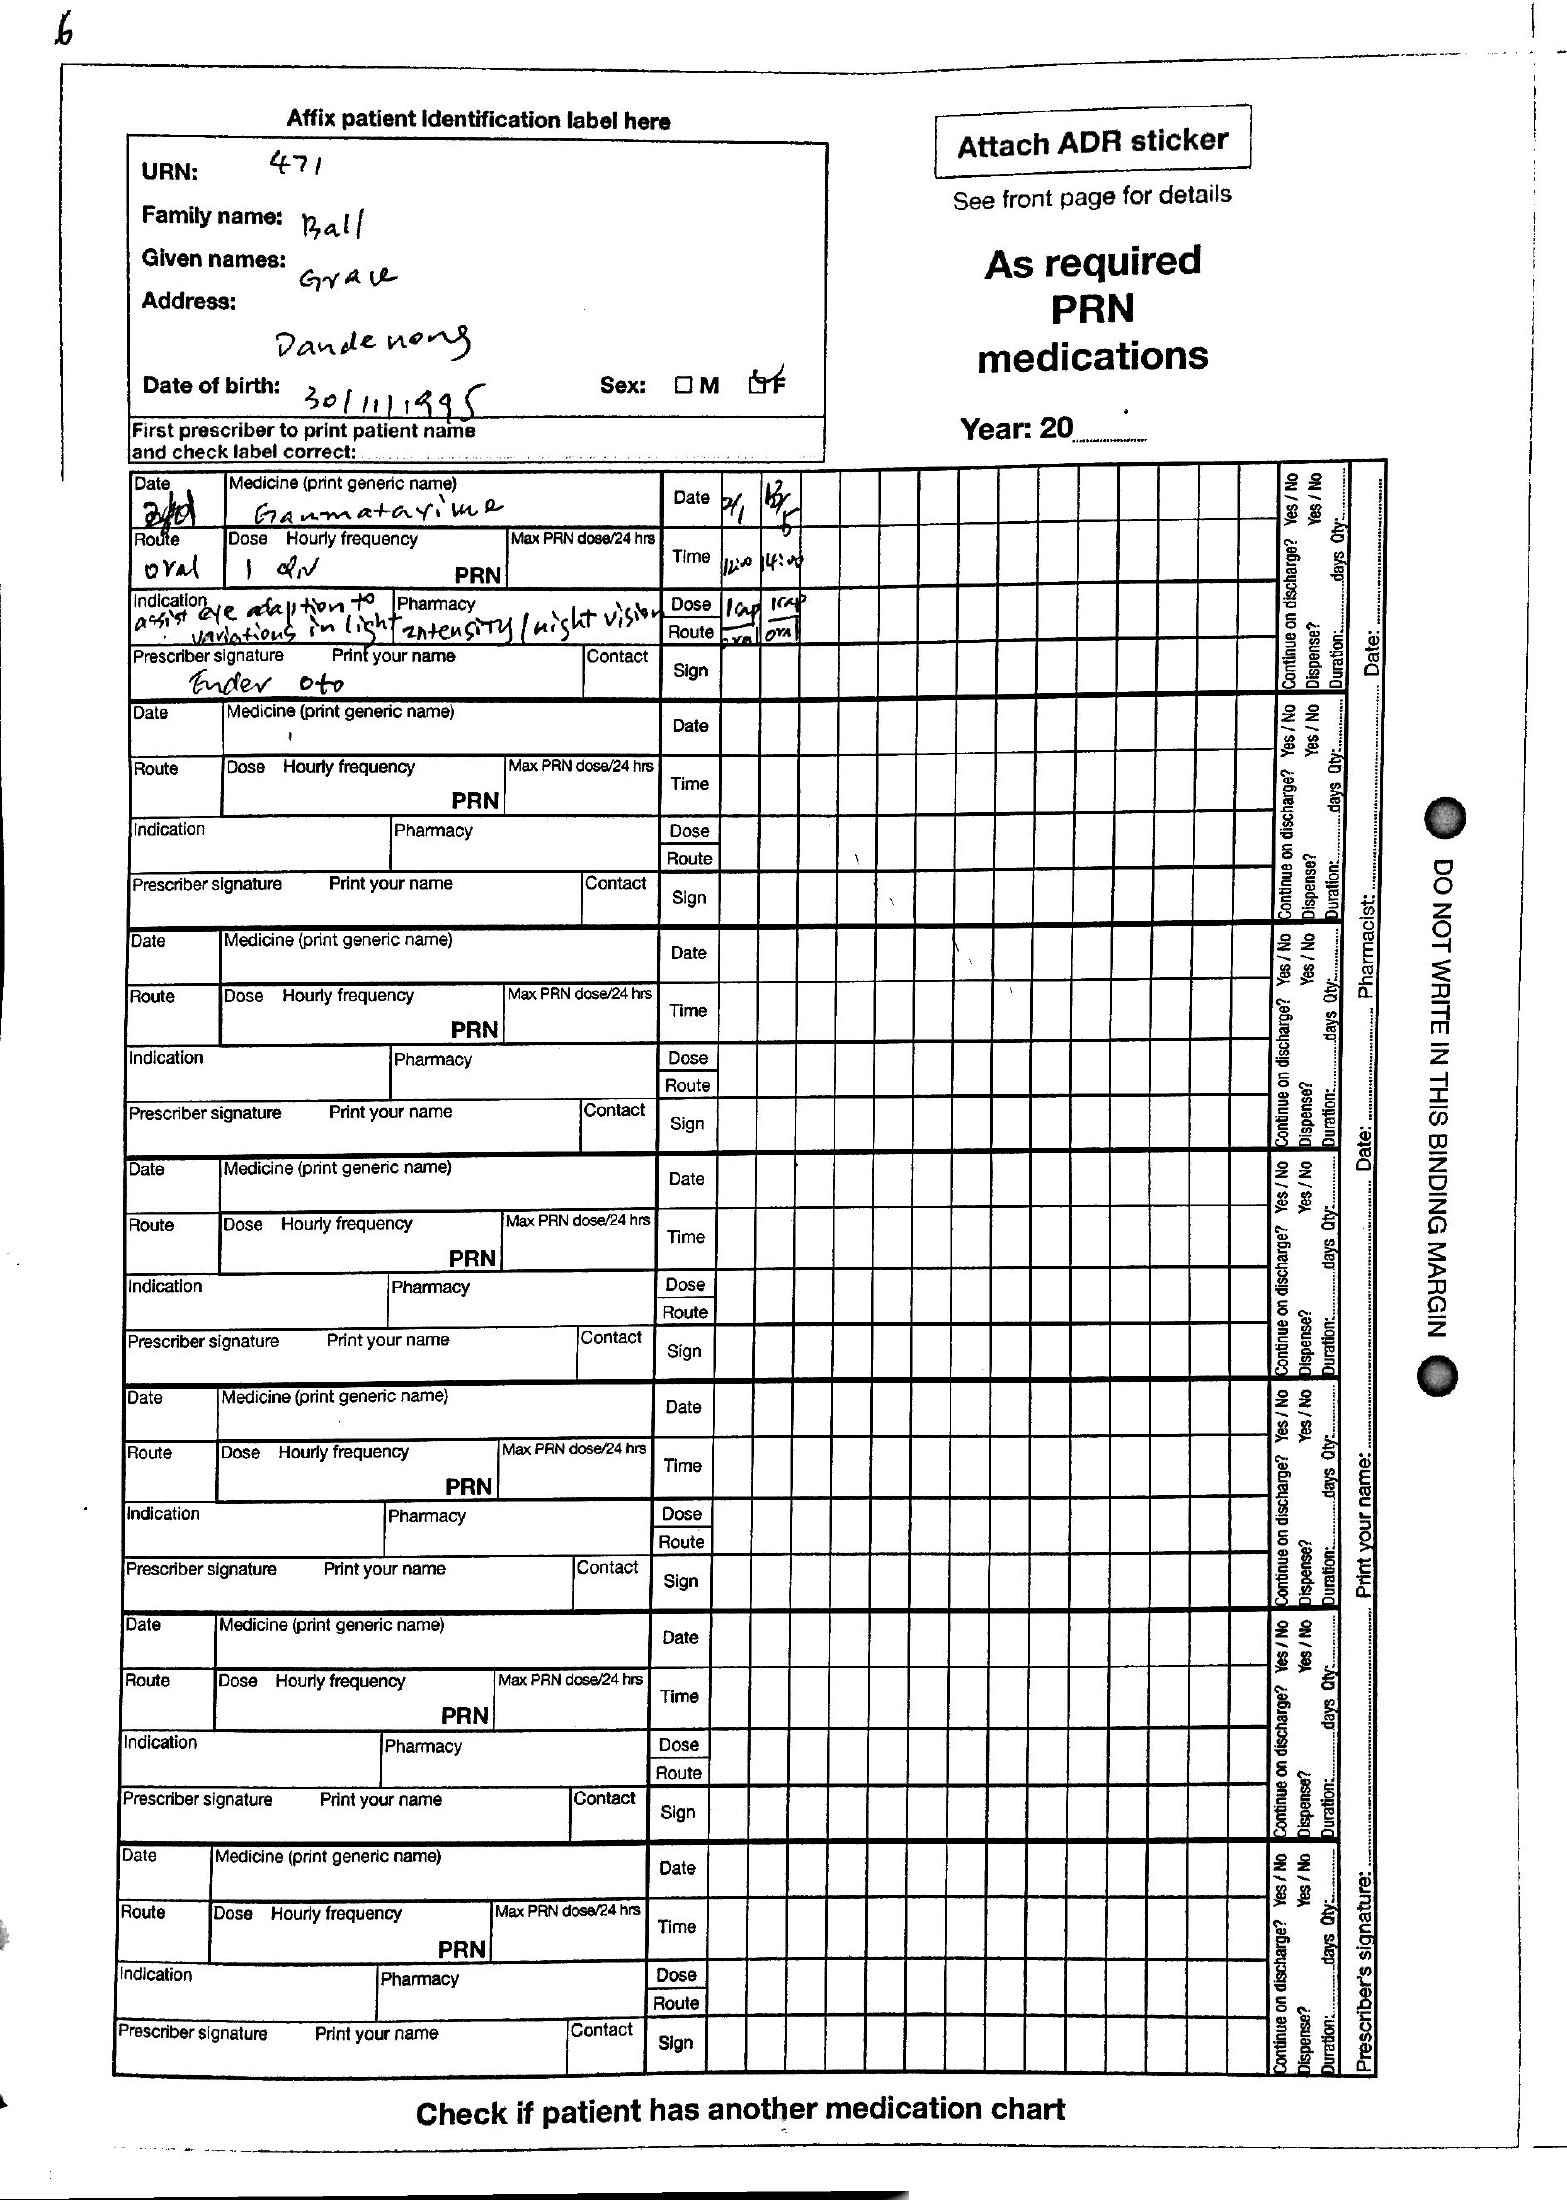 6
Affix patient Identification label here
URN: 471
Family name: Ball
Given names: Grace
Address:
Dandenong
Date of birth: 30/11/1995 Sex: M F
First prescriber to print patient name
and check label correct:
Attach ADR sticker
See front page for details
As required
PRN
medications
Year: 20
Date Medicine (print generic name) Date 2/1
Route Dose Hourly frequency PRN Max PRN dose/24 hrs Time 12:00 14:00
oral 1
Indication Pharmacy Dose 1cap 1cap
assist eye adaption to
variations in light intensity / night vision Route oral oral
Prescriber signature Print your name Contact Sign
Ender Oto
Continue on discharge? Yes / No
Dispense? Yes / No
Duration: days Qty:
Date Medicine (print generic name) Date
Route Dose Hourly frequency PRN Max PRN dose/24 hrs Time
Indication Pharmacy Dose
Route
Prescriber signature Print your name Contact Sign
Continue on discharge? Yes / No
Dispense? Yes / No
Duration: days Qty:
Date Medicine (print generic name) Date
Route Dose Hourly frequency PRN Max PRN dose/24 hrs Time
Indication Pharmacy Dose
Route
Prescriber signature Print your name Contact Sign
Continue on discharge? Yes / No
Dispense? Yes / No
Duration: days Qty:
Date Medicine (print generic name) Date
Route Dose Hourly frequency PRN Max PRN dose/24 hrs Time
Indication Pharmacy Dose
Route
Prescriber signature Print your name Contact Sign
Continue on discharge? Yes / No
Dispense? Yes / No
Duration: days Qty:
Date Medicine (print generic name) Date
Route Dose Hourly frequency PRN Max PRN dose/24 hrs Time
Indication Pharmacy Dose
Route
Prescriber signature Print your name Contact Sign
Continue on discharge? Yes / No
Dispense? Yes / No
Duration: days Qty:
Date Medicine (print generic name) Date
Route Dose Hourly frequency PRN Max PRN dose/24 hrs Time
Indication Pharmacy Dose
Route
Prescriber signature Print your name Contact Sign
Continue on discharge? Yes / No
Dispense? Yes / No
Duration: days Qty:
Date Medicine (print generic name) Date
Route Dose Hourly frequency PRN Max PRN dose/24 hrs Time
Indication Pharmacy Dose
Route
Prescriber signature Print your name Contact Sign
Continue on discharge? Yes / No
Dispense? Yes / No
Duration: days Qty:
Prescriber's signature: Print your name: Date: Pharmacist: Date:
DO NOT WRITE IN THIS BINDING MARGIN
Check if patient has another medication chart